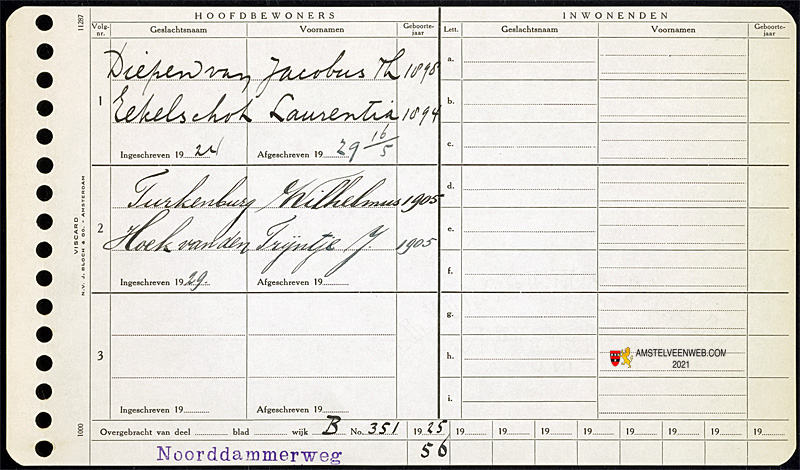 11287
HOOFDBEWONERS
INWONENDEN
Volg-nr. Geslachtsnaam Voornamen Geboorte-jaar
Lett. Geslachtsnaam Voornamen Geboorte-jaar
Diepen van Jacobus Th 1898
1
Eekelschot Laurentia 1894
Ingeschreven 19 24 Afgeschreven 19 29 16/5
Turkenburg Wilhelmus 1905
2
Hoek van den Trijntje J 1905
Ingeschreven 19 29. Afgeschreven 19
3
Ingeschreven 19 Afgeschreven 19
a.
b.
c.
d.
e.
f.
g.
h.
i.
AMSTELVEENWEB.COM
2021
VISCARD
N.V. J. BLOCH & CO. - AMSTERDAM
1000
Overgebracht van deel blad wijk B No. 351 19 25 19 19 19 19 19 19 19 19
56
Noorddammerweg